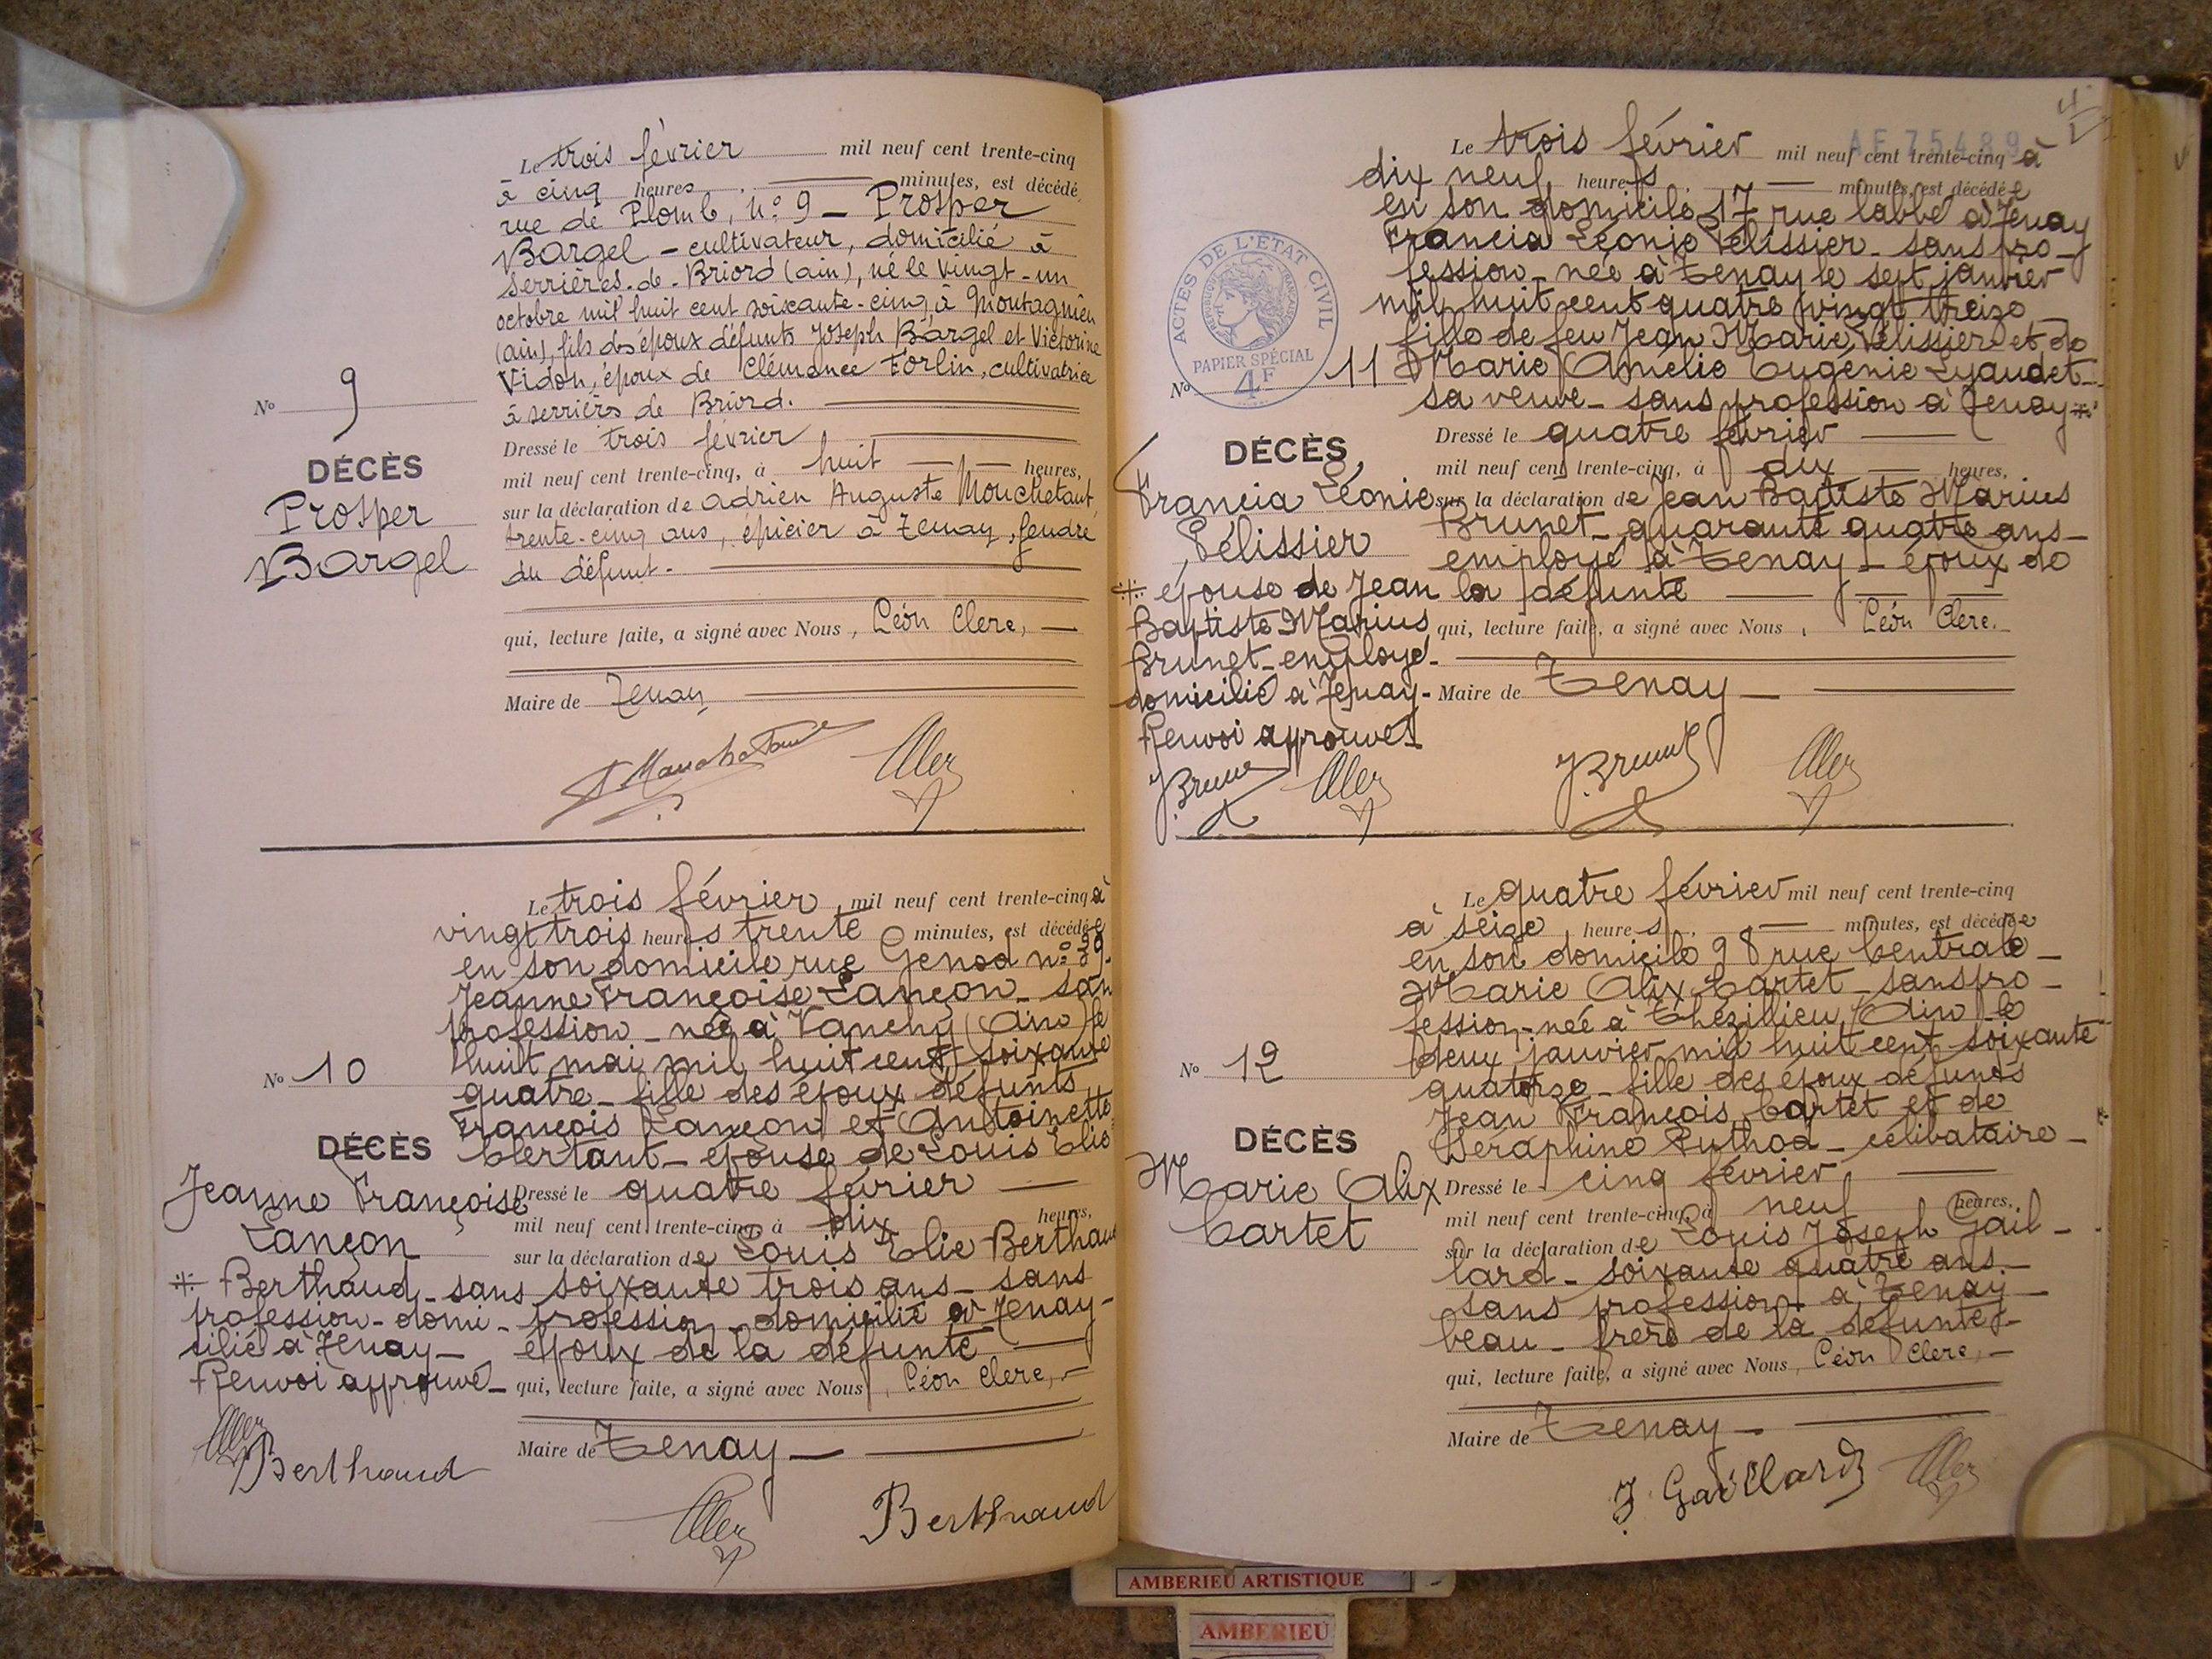 Le trois février mil neuf cent trente-cinq
à cinq heures, minutes, est décédé
rue de Plomb, n° 9 - Prosper
Bargel - cultivateur, domicilié à
Serrières-de-Briord (ain), né le vingt-un
octobre mil huit cent soixante-cinq à Montagnieu
(ain), fils des époux défunts Joseph Bargel et Victorine
Vidon, époux de Clémence Forlin, cultivatrice
à serrières de Briord.
N° 9
DÉCÈS
Prosper
Bargel
Dressé le trois février
mil neuf cent trente-cinq, à huit heures,
sur la déclaration de adrien Auguste Mouchetant
trente-cinq ans, épicier à Tenay, gendre
du défunt.
qui, lecture faite, a signé avec Nous, Léon Clerc,
Maire de Tenay
Le trois février mil neuf cent trente-cinq à
vingt trois heures trente minutes, est décédée
en son domicile rue Genod n°
Jeanne Françoise Lançon - san
profession - née à Vanchy (Ain) le
huit mai mil huit cent soixante
quatre - fille des époux défunts
François Lançon et Antoinette
Clertant - épouse de Louis Elie*
N° 10
DÉCÈS
Jeanne Françoise
Lançon
* Berthaud - sans
profession - domi-
cilié à Tenay -
Renvoi approuvé -
Berthaud
Dressé le quatre février
mil neuf cent trente-cinq à dix heures,
sur la déclaration de Louis Elie Berthaud
soixante trois ans - sans
profession - domicilié à Tenay -
époux de la défunte
qui, lecture faite, a signé avec Nous, Léon Clerc,
Maire de Tenay
Berthaud
4
AE 75489
Le trois février mil neuf cent trente-cinq à
dix neuf heures, minutes, est décédée
en son domicile 17 rue Labbé à Tenay
Francia Léonie Pélissier - sans pro-
fession - née à Tenay le sept janvier
mil huit cent quatre vingt treize
fille de feu Jean Marie Pélissier et de
Marie Amélie Eugénie Lyaudet
sa veuve - sans profession à Tenay *
ACTES DE L'ÉTAT CIVIL
RÉPUBLIQUE FRANÇAISE
PAPIER SPÉCIAL
4F
N° 11
DÉCÈS
Francia Léonie
Pélissier
* épouse de Jean
Baptiste Marius
Brunet - employé -
domicilié à Tenay -
Renvoi approuvé -
J. Brunet
Dressé le quatre février
mil neuf cent trente-cinq, à dix heures,
sur la déclaration de Jean Baptiste Marius
Brunet - quarante quatre ans -
employé à Tenay - époux de
la défunte
qui, lecture faite, a signé avec Nous, Léon Clerc.
Maire de Tenay
J. Brunet
Le quatre février mil neuf cent trente-cinq
à seize heures, minutes, est décédée
en son domicile 98 rue Centrale -
Marie Alix Cartet - sans pro-
fession - née à Thézillieu (Ain) le
deux janvier mil huit cent soixante
quatorze - fille des époux défunts
Jean François Cartet et de
Séraphine Puthod - célibataire -
N° 12
DÉCÈS
Marie Alix
Cartet
Dressé le cinq février
mil neuf cent trente-cinq, à neuf heures,
sur la déclaration de Louis Joseph Gail-
lard - soixante quatre ans -
sans profession à Tenay -
beau-frère de la défunte -
qui, lecture faite, a signé avec Nous, Léon Clerc,
Maire de Tenay
J. Gaillard
AMBERIEU ARTISTIQUE
AMBERIEU